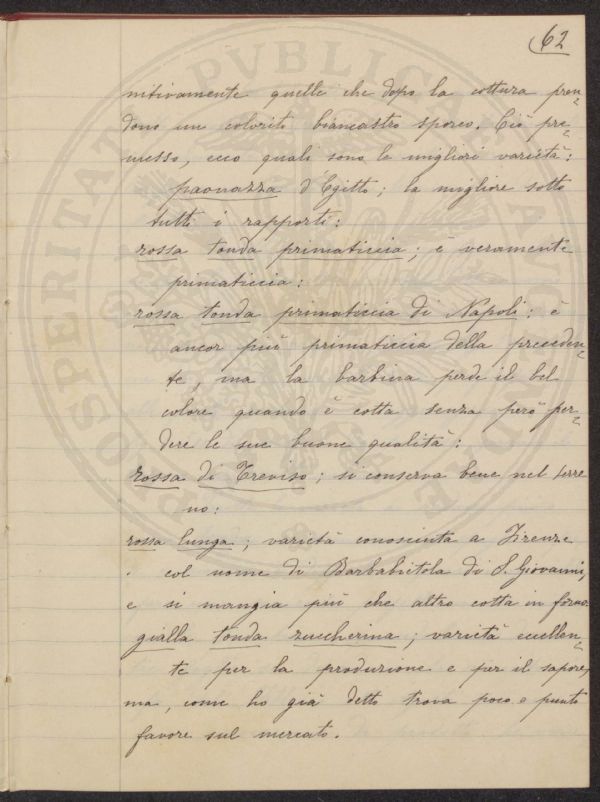 62
nitivamente quelle che dopo la cottura pren=
dono un colorito biancastro sporco. Ciò pre=
messo, ecco quali sono le migliori varietà:
paonazza d'Egitto; la migliore sotto
tutti i rapporti:
rossa tonda primaticcia; è veramente
primaticcia:
rossa tonda primaticcia di Napoli: è
ancor più primaticcia della preceden=
te, ma la barbina perde il bel
colore quando è cotta senza però per=
dere le sue buone qualità:
rossa di Treviso; si conserva bene nel terre
no:
rossa lunga; varietà conosciuta a Firenze
col nome di Barbabietola di S. Giovanni,
e si mangia più che altro cotta in forno:
gialla tonda zuccherina; varietà eccellen=
te per la produzione e per il sapore,
ma, come ho già detto trova poco o punto
favore sul mercato.